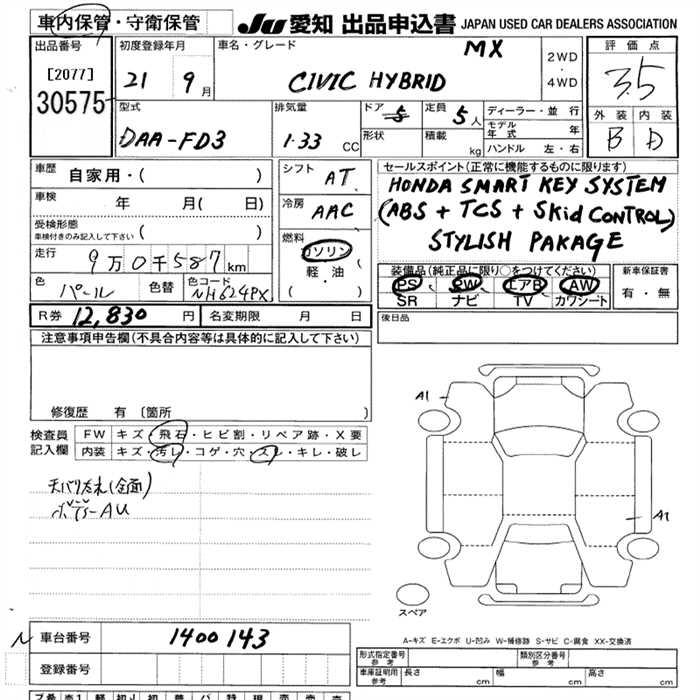 車内保管・守衛保管
JU 愛知 出品申込書 JAPAN USED CAR DEALERS ASSOCIATION
出品番号
[2077]
30575
初度登録年月
21 9 月
車名・グレード
MX
CIVIC HYBRID
2WD
・
4WD
評価点
3.5
外装 内装
B D
型式
DAA-FD3
排気量
1.33 CC
ドア 5
形状
定員 5 人
積載 kg
ディーラー・並行
モデル年式 年
ハンドル 左・右
車歴 自家用・( )
車検 年 月( 日)
受検形態
車検付きのみ記入して下さい ( )
走行 9万0千587km
色 パール
色替
色コード
NH624PX
シフト AT
冷房 AAC
燃料
ガソリン
軽・油
( ・ )
セールスポイント(正常に機能するものに限ります)
HONDA SMART KEY SYSTEM
(ABS + TCS + Skid CONTROL)
STYLISH PAKAGE
装備品(純正品に限り○をつけてください)
PS PW エアB AW
SR ナビ TV カワシート
新車保証書
有・無
R券 12,830 円
名変期限 月 日
後日品
注意事項申告欄(不具合内容等は具体的に記入して下さい)
修復歴 有 〔箇所 〕
検査員
記入欄
FW キズ・飛石・ヒビ割・リペア跡・X要
内装 キズ・汚レ・コゲ・穴・スレ・キレ・破レ
天バリたれ(全面)
AU
A1
A1
スペア
A-キズ E-エクボ U-凹み W-補修跡 S-サビ C-腐食 XX-交換済
N
車台番号 1400143
登録番号
型式指定番号
参考
類別区分番号
参考
車庫証明用
参考
長さ cm
幅 cm
高さ cm